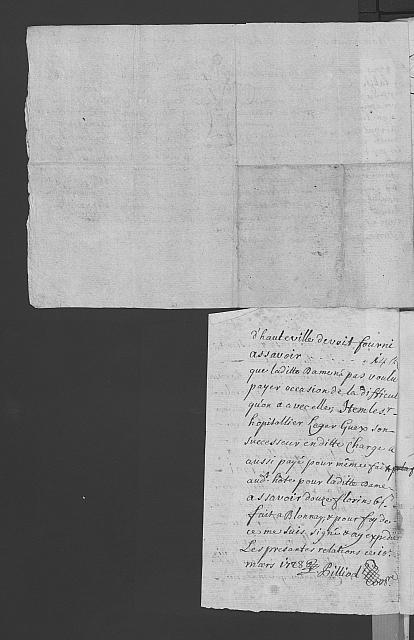 d'hauteville devoit fourni
assavoir
que laditte Dame n'a pas voulu
payer occasion de la difficul
qu'on a avec elles, Item le sr
hopitallier Leger Guex son
successeur en ditte charge a
aussi payé pour même fait
audt hôte pour laditte Dame
assavoir douze florins 6 s
fait a Blonnay & pour foy de
ce me suis signé & ay expedié
Les presentes relations ce 10e
mars 1728 Pilliod